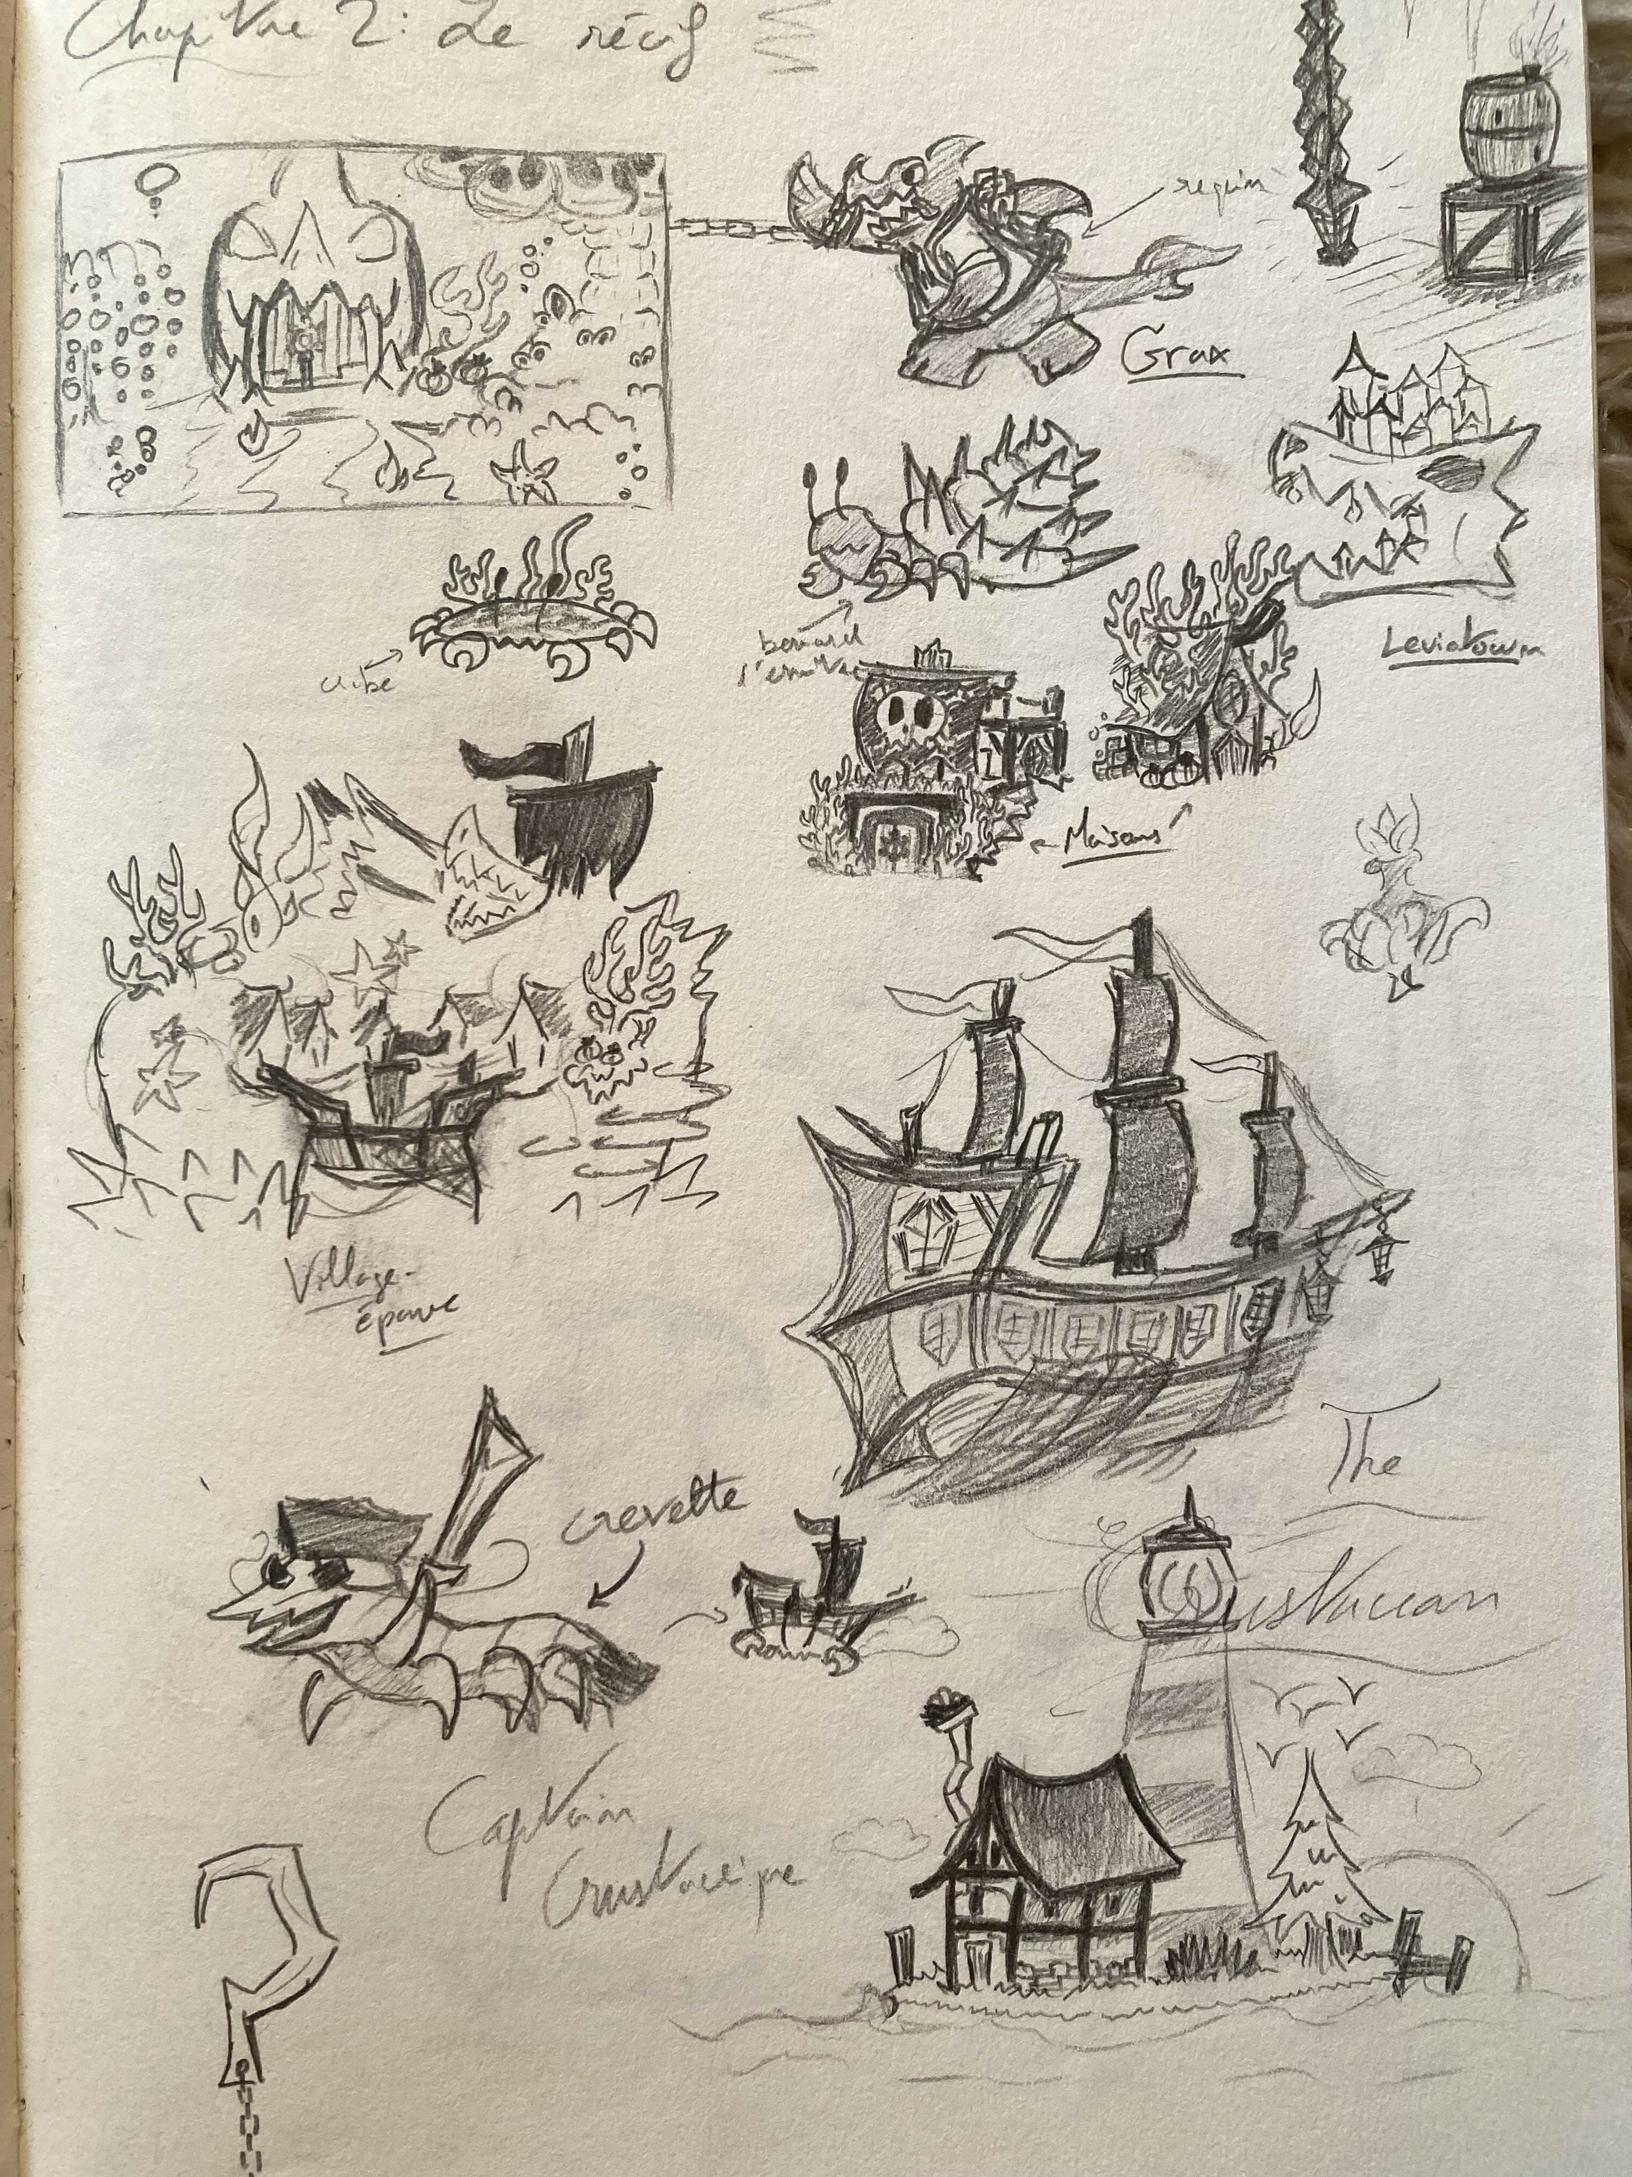 Chapitre 2: Le récif
requin
Grax
bernard
l'ermite
crabe
Leviatown
Maisons
Village-
épave
The
Crustacean
crevette
Captain